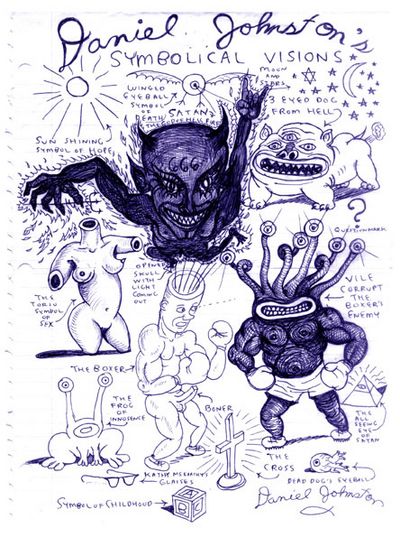 Daniel Johnston's
SYMBOLICAL VISIONS
WINGED
EYEBALL
SYMBOL
OF
DEATH
SATAN
MOON
AND
STARS
3 EYED DOG
FROM HELL
SUN SHINING
SYMBOL OF HOPE
666
?
QUESTION MARK
OPENED
SKULL
WITH
LIGHT
COMING
OUT
VILE
CORRUPT
THE
BOXER'S
ENEMY
THE
TORSO
SYMBOL
OF
SEX
THE BOXER
THE
FROG
OF
INNOSENCE
BONER
THE
ALL
SEEING
EYE OF
SATAN
THE
CROSS
KATHY McCARTHY'S
GLASSES
DEAD DOG'S EYEBALL
SYMBOL OF CHILDHOOD
A
B
Daniel Johnston